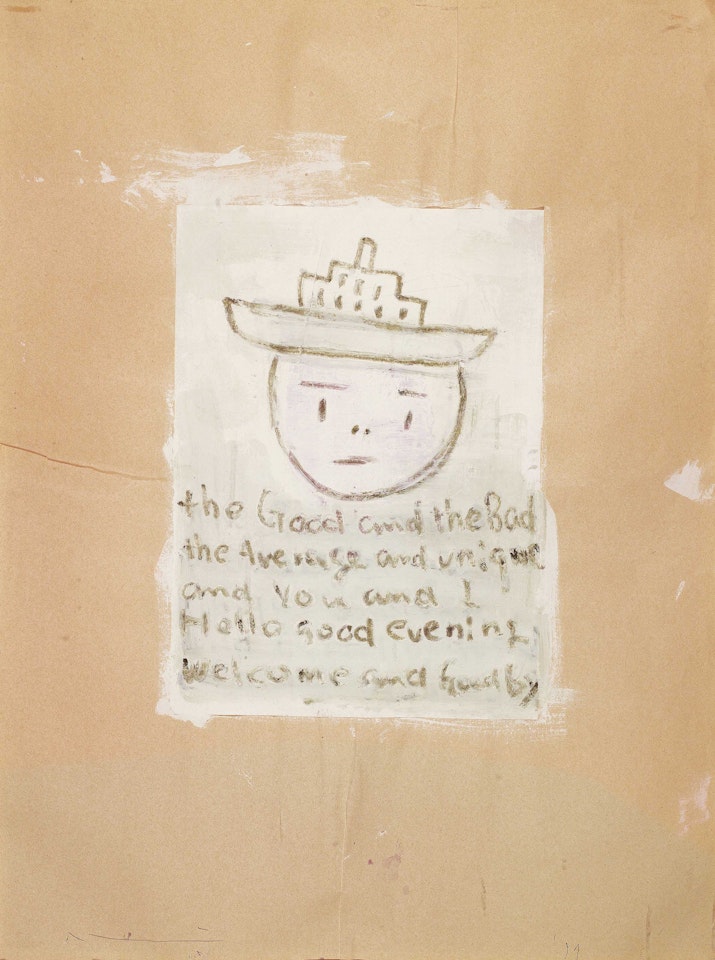 the Good and the Bad
the Average and unique
and You and I
Hello good evening,
welcome and Goodby